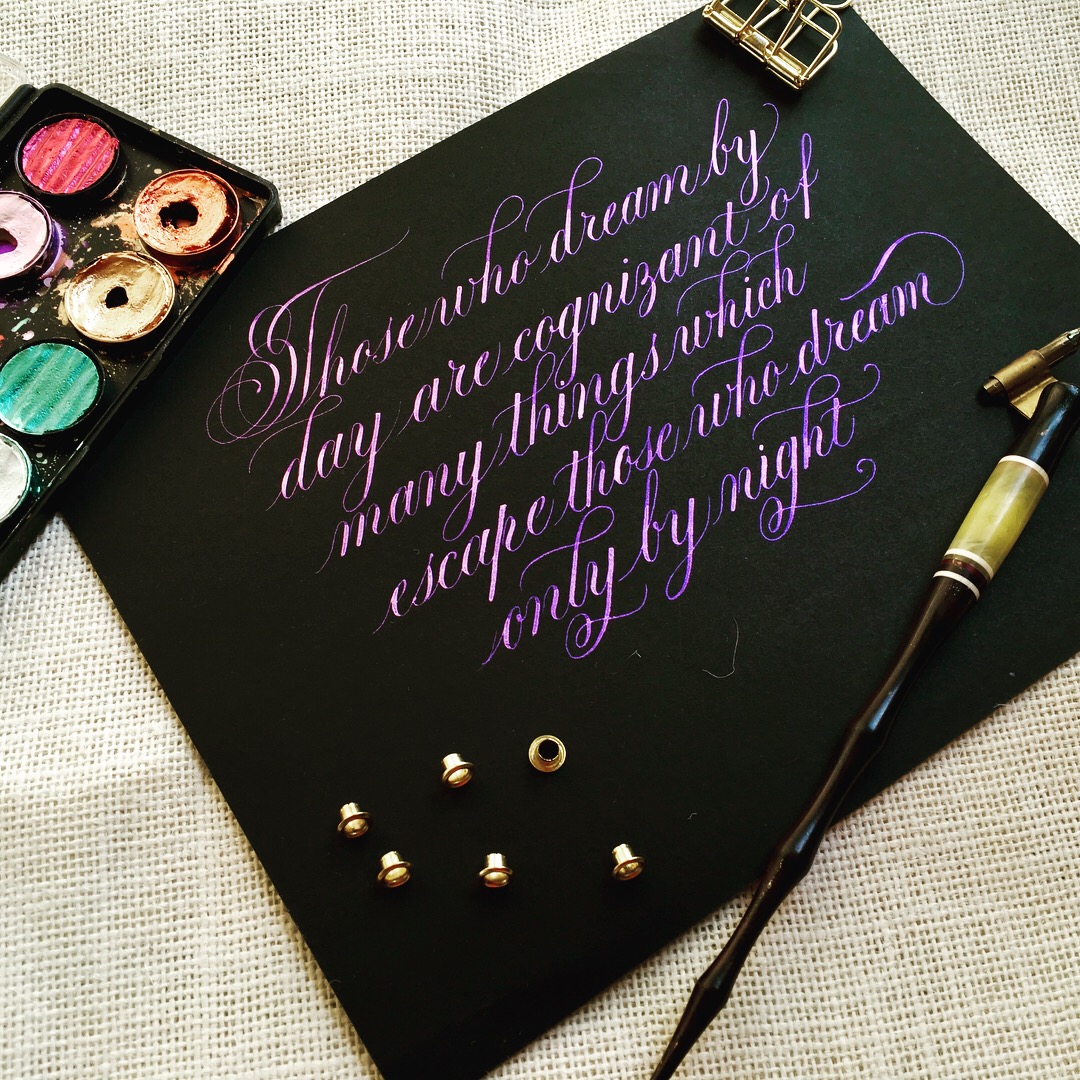 Those who dream by
day are cognizant of
many things which
escape those who dream
only by night